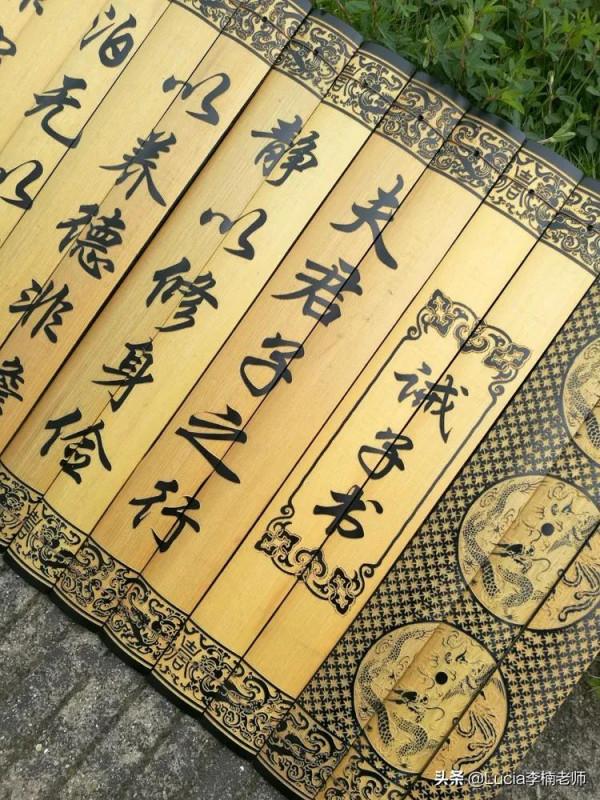 诫子书
夫君子之行
静以修身俭
以养德非澹
泊无以
头条 @Lucia李楠老师